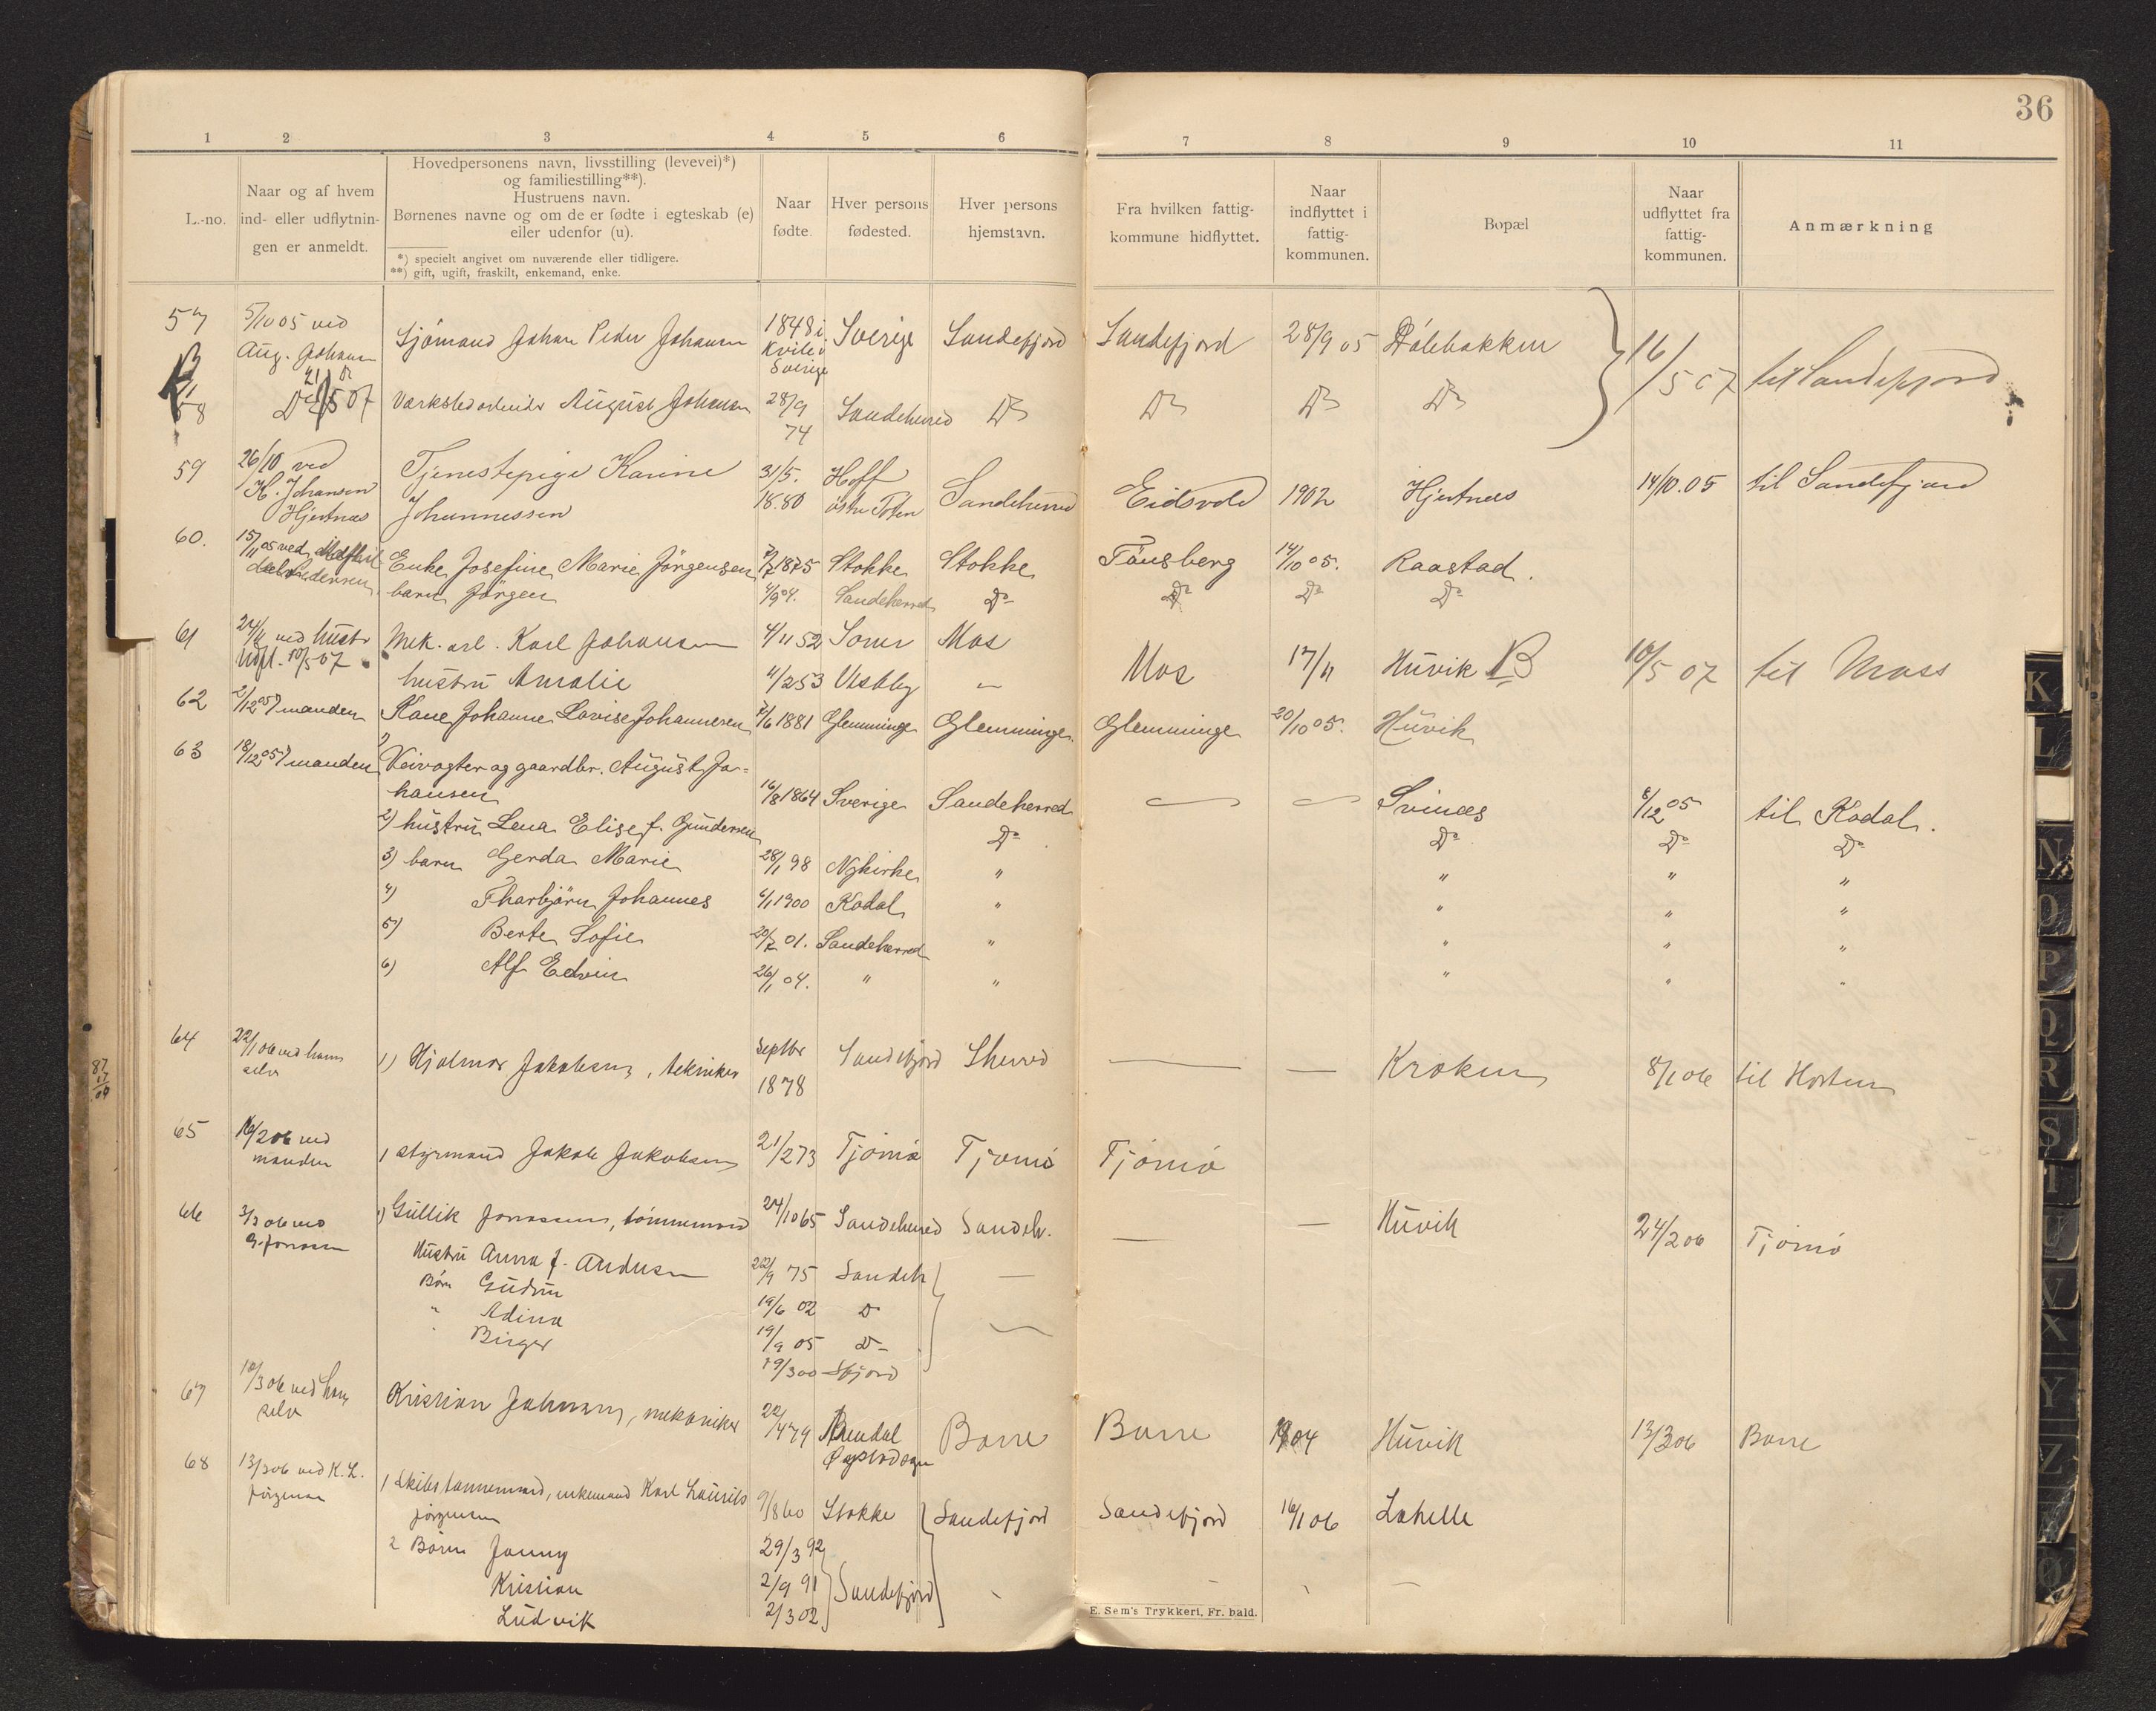 36
1 2 3 4 5 6 7 8 9 10 11
L.-no.
Naar og af hvem
ind- eller udflytnin-
gen er anmeldt.
Hovedpersonens navn, livsstilling (levevei)*)
og familiestilling**).
Hustruens navn.
Børnenes navne og om de er fødte i egteskab (e)
eller udenfor (u).
*) specielt angivet om nuværende eller tidligere.
**) gift, ugift, fraskilt, enkemand, enke.
Naar
fødte.
Hver persons
fødested.
Hver persons
hjemstavn.
Fra hvilken fattig-
kommune hidflyttet.
Naar
indflyttet i
fattig-
kommunen.
Bopæl
Naar
udflyttet fra
fattig-
kommunen.
Anmærkning
57 5/10 05 ved Sjømand Johan Peder Johansen 1848 i Sverige Sandefjord Sandefjord 28/9 05 Dølebakken 16/5 07 til Sandefjord
Aug. Johansen Kville i
Sverige
58 Do Værkstedarbeider August Johansen 28/9 Sandeherred Do Do Do Do
74
59 26/10 ved Tjenestepige Karine 31/5. Hoff Sandeherred Eidsvold 1902 Hjertnæs 14/10.05 til Sandefjord
H. Johansen Johannessen 18.80 østre Toten
Hjertnæs
60. 15/11 05 ved Enke Josefine Marie Jørgensen 7/7 1875 Stokke Stokke Tønsberg 14/10 05. Raastad.
barn Jörgen 4/9 04. Sandeherred Do Do Do Do
61 24/11 ved hustr Mek. arb. Karl Johansen 4/11 52 Soner Mos Mos 17/11 Huvik B 10/5 07 til Moss
Udfl. 10/5 07 hustru Amalie 4/2 53 Vestby —
62 2/12 05 manden Kane Johanne Lovise Johannesen 7/6 1881 Glemminge Glemminge. Glemminge 20/10 05. Huvik
63 18/12 05 manden 1) Veivogter og gaardbr. August Jo-
hansen 16/8 1864 Sverige Sandeherred — — Svinæs 8/12 05 til Kodal.
2) hustru Lena Elise f. Gundersen Do Do Do Do
3) barn Gerda Marie 28/1 98 Nykirke " " " "
4) Thorbjörn Johannes 6/1 1900 Kodal " " " "
5) Berte Sofie 20/7 01. Sandeherred " " " "
6) Alf Edvin 26/1 04. " " " " "
64 22/1 06 ved ham 1) Hjalmar Jakobsen, tekniker Septbr Sandefjord Sherred — — Kroken 8/1 06 til Horten
selv 1878
65 16/2 06 ved 1 Styrmand Jakob Jakobsen 21/2 73 Tjømø Tjømø Tjømø
manden
66 3/3 06 ved 1) Gullik Jonassen, tømmermand 24/10 65 Sandeherred Sandeh. — — Huvik 24/2 06 Tjømø
G. Jonassen Hustru Anna f. Andersen 22/9 75 Sandeh —
Børn Gudrun 19/6 02 Do
" Adina 19/9 05 Do —
Birger 19/3 00 Sfjord
67 10/3 06 ved ham Kristian Johnsen, mekaniker 22/4 79 Arendal Borre Borre 1904 Huvik 13/3 06 Borre
selv
68 13/3 06 ved K. L. 1 Skibstømmermand, enkemand Karl Laurits 9/8 60 Stokke Sandefjord Sandefjord 16/1 06 Lahelle
Jørgensen Jørgensen
2 Børn Jenny 29/3 92
Kristian 2/9 91 Sandefjord
Ludvik 2/3 02
E. Sem's Trykkeri, Fr. hald.
K
L
N
O
P
Q
R
S
T
U
V
X
Y
Z
Æ
Ø